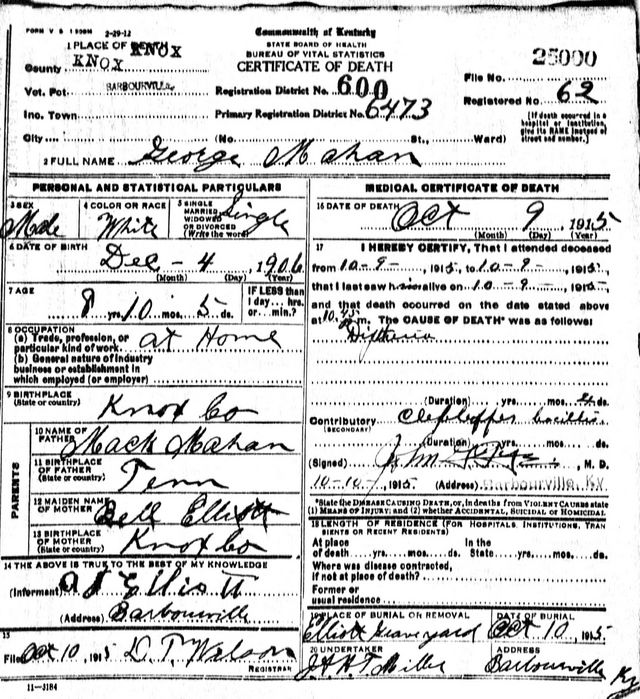 FORM V S 1 500M 2-29-12
Commonwealth of Kentucky
STATE BOARD OF HEALTH
BUREAU OF VITAL STATISTICS
CERTIFICATE OF DEATH
25000
File No.
Registered No. 62
[If death occurred in a hospital or institution, give its NAME instead of street and number.]
1 PLACE OF DEATH KNOX
County KNOX
Vot. Pct BARBOURVILLE
Registration District No. 600
Inc. Town
Primary Registration District No. 6473
City (No. St., Ward)
2 FULL NAME George Mahan
PERSONAL AND STATISTICAL PARTICULARS
3 SEX Male
4 COLOR OR RACE White
5 SINGLE MARRIED WIDOWED OR DIVORCED (Write the word) Single
6 DATE OF BIRTH Dec - 4 1906
(Month) (Day) (Year)
7 AGE 8 yrs. 10 mos. 5 ds.
IF LESS than 1 day... hrs. or... min.?
8 OCCUPATION
(a) Trade, profession, or particular kind of work at Home
(b) General nature of industry business or establishment in which employed (or employer)
9 BIRTHPLACE (State or country) Knox Co
PARENTS
10 NAME OF FATHER Mack Mahan
11 BIRTHPLACE OF FATHER (State or country) Tenn
12 MAIDEN NAME OF MOTHER Bell Elliott
13 BIRTHPLACE OF MOTHER (State or country) Knox Co
14 THE ABOVE IS TRUE TO THE BEST OF MY KNOWLEDGE
(Informant) Elliott
(Address) Barbourville
15
Filed Oct 10, 1915 D. T. Wilson
REGISTRAR
11-3184
MEDICAL CERTIFICATE OF DEATH
16 DATE OF DEATH Oct 9, 1915
(Month) (Day) (Year)
17 I HEREBY CERTIFY, That I attended deceased
from 10-9-, 1915, to 10-9-, 1915,
that I last saw him alive on 10-9-, 1915,
and that death occurred on the date stated above
at 10.45 m. The CAUSE OF DEATH* was as follows:
Diptheria
(Duration) yrs. mos. ds.
Contributory (SECONDARY)
(Duration) yrs. mos. ds.
(Signed) John, M. D.
10-10, 1915 (Address) Barbourville, Ky
*State the DISEASE CAUSING DEATH, or, in deaths from VIOLENT CAUSES state (1) MEANS OF INJURY; and (2) whether ACCIDENTAL, SUICIDAL or HOMICIDAL.
18 LENGTH OF RESIDENCE (FOR HOSPITALS, INSTITUTIONS, TRANSIENTS OR RECENT RESIDENTS)
At place of death yrs. mos. ds. In the State yrs. mos. ds.
Where was disease contracted, if not at place of death?
Former or usual residence
19 PLACE OF BURIAL OR REMOVAL Elliott Graveyard
DATE OF BURIAL Oct 10, 1915
20 UNDERTAKER J. H. H. T. Miller
ADDRESS Barbourville Ky